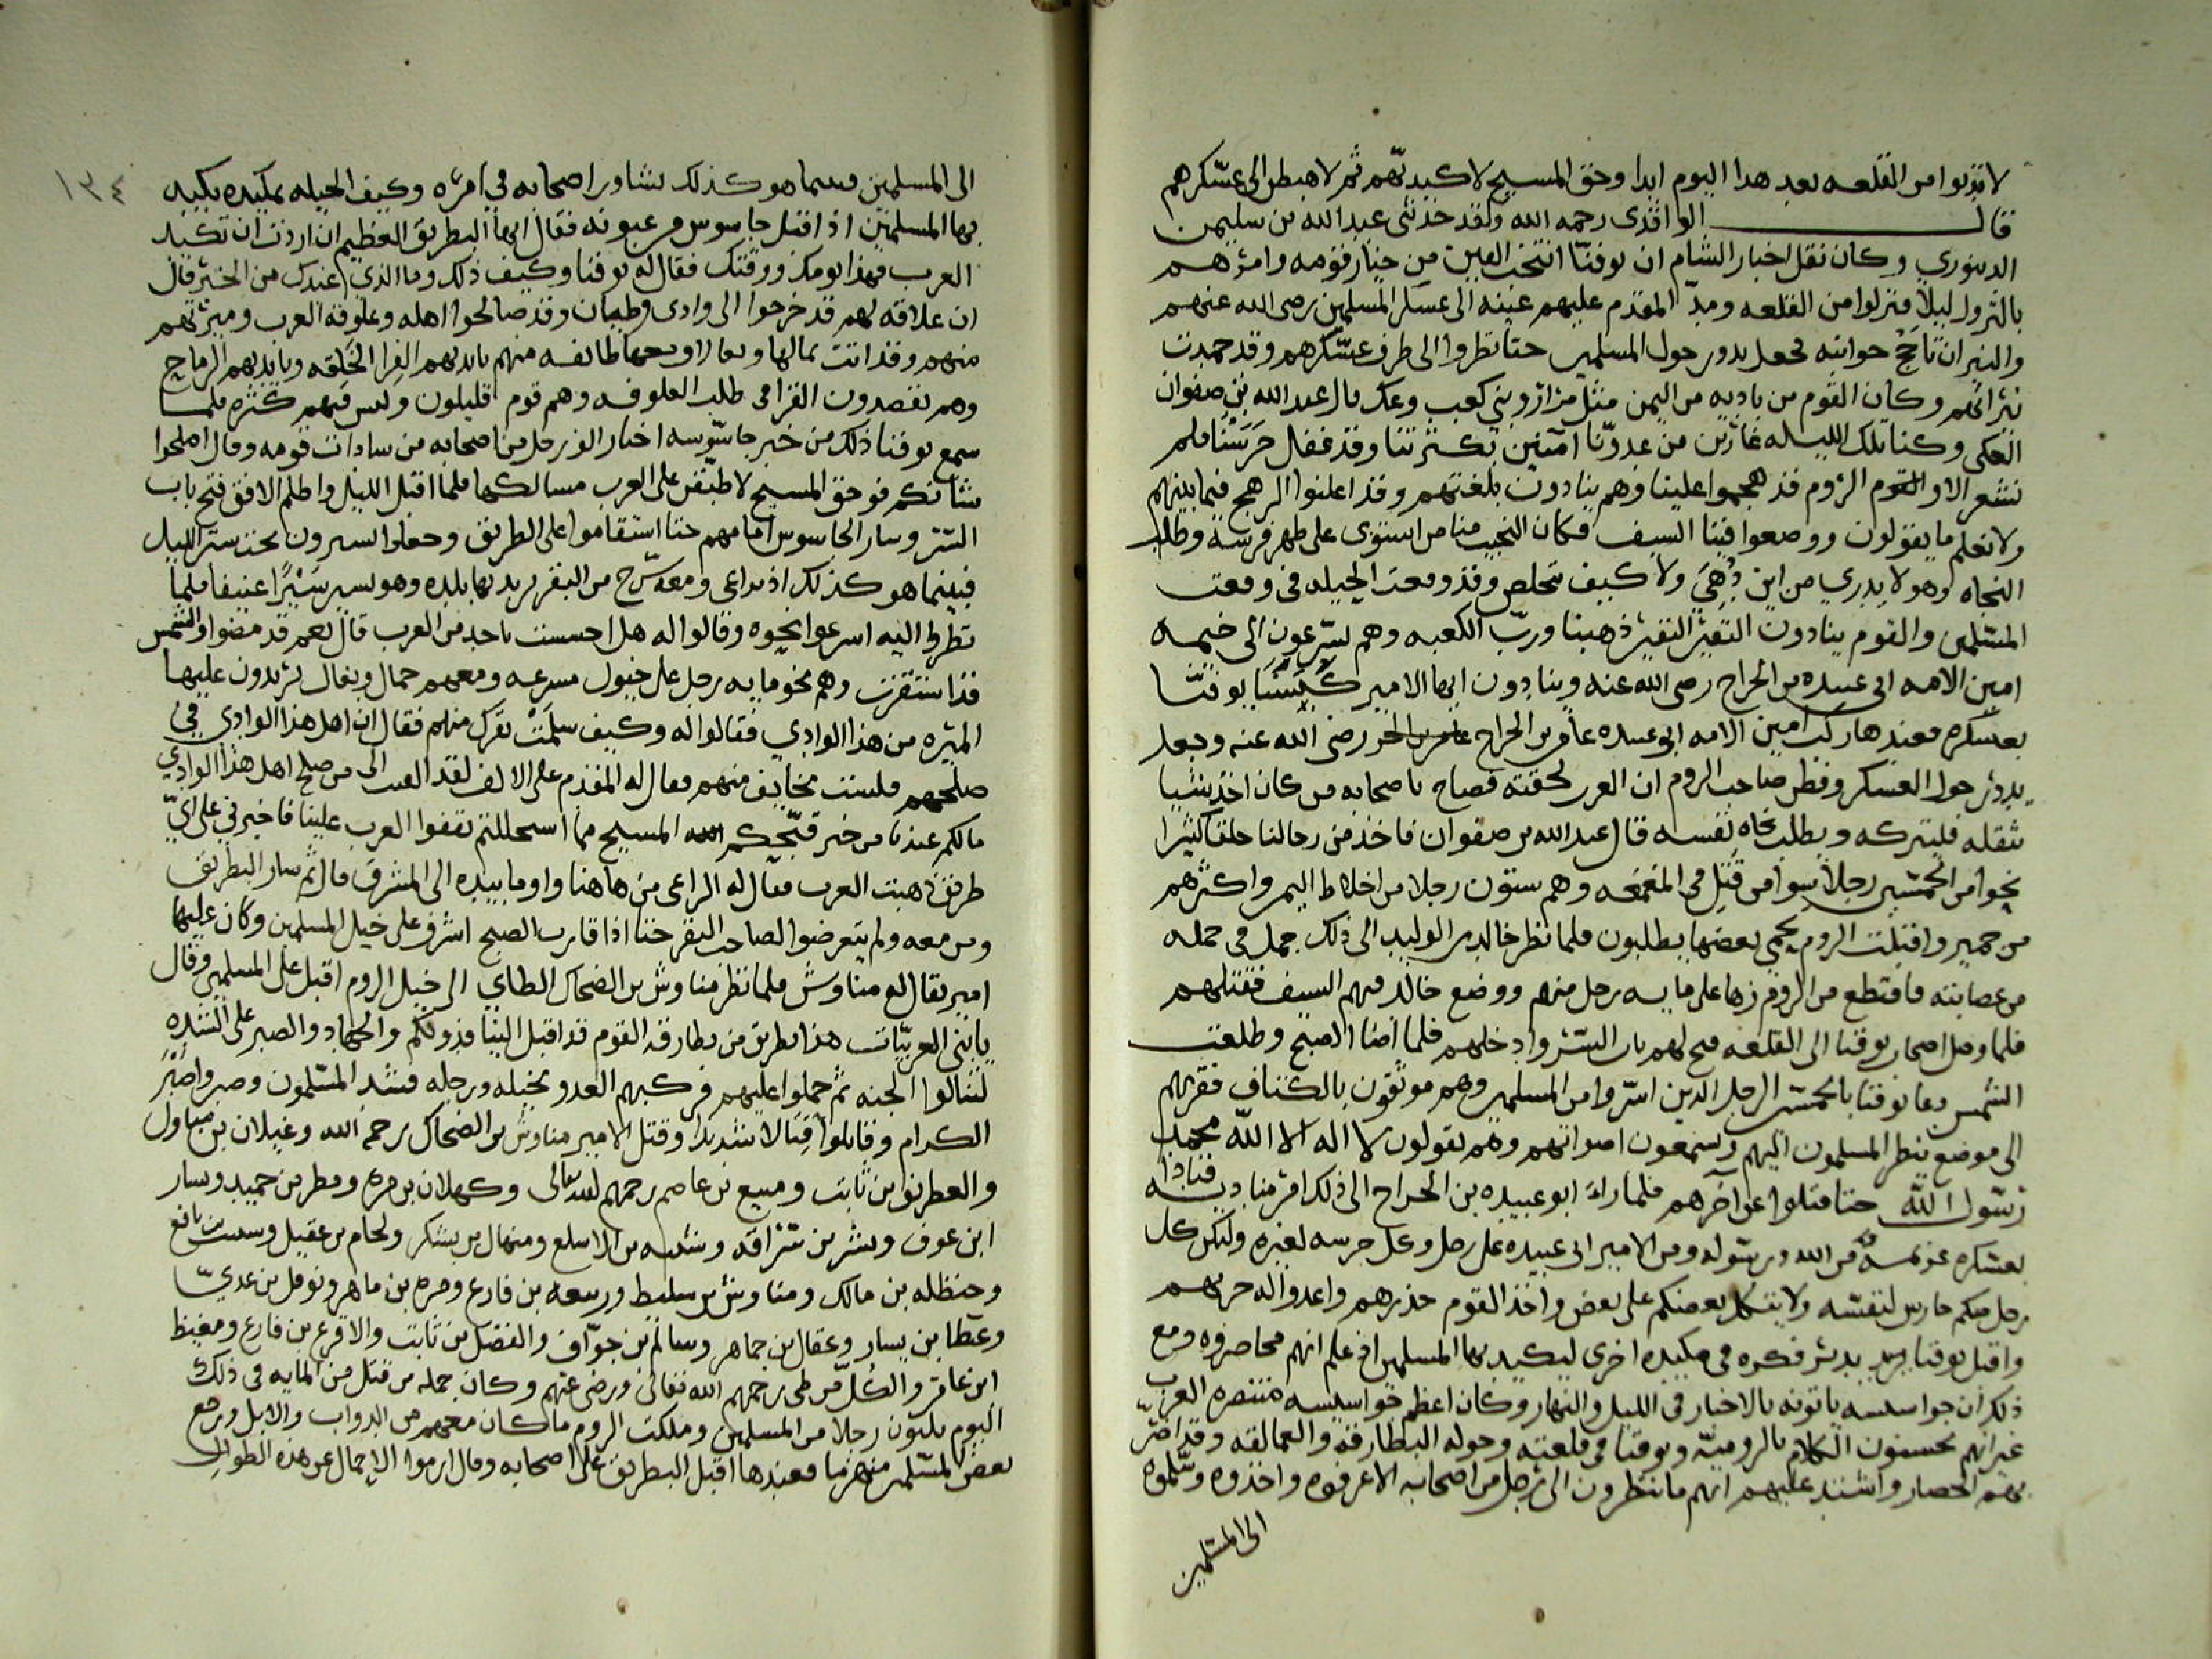 لا تدنوا من القلعه بعد هدا اليوم ابدا وحق المسيح لا كيدنّهم ثم لاهبطن الى عسّكرهم
قال الواقدى رحمه الله ولقد حدثنى عبد الله بن سليمن
الدينوري وكان نقل اخبار الشام ان يوقنّا انتخب الفين من خيار قومه وامرهم
بالنزول ليلا فنزلوا من القلعه ومدّ المقدم عليهم عينه الى عسكر المسلمين رضى الله عنهم
والنيران تاجج حوانبه فجعل يدور حول المسلمين حتا نظروا الى طرف عسّكرهم وقد خمدت
نيرانهم وكان القوم من باديه من اليمن مثل مراد وبني كعب وعك قال عبد الله بن صفوان
العكى وكنا تلك الليله غارين من عدوّنا امنين بكثرتنا وقد غفل حَرَسْنا فلم
نشعر الا والقوم الروم قد هجموا علينا وهم ينادون بلغتهم وقد اعلنوا الرهج فيما بينهم
ولا نعلم ما يقولون ووضعوا فينا السيف فكان النجيب منا من استوى على ظهر فرسه وطلب
النجاه وهو لا يدري من اين دُهِيَ ولا كيف تخلص وقد وقعت الحيله فى وقعت
المسّلمين والقوم ينادون النفير النفير ذهبنا وربّ الكعبه وهم يسّرعون الى خيمه
امين الامه ابى عبيده بن الجراح رضى الله عنه وينادون ايها الامير كبَسَنا يوقنّا
بعسّكره فعندها ركب امين الامه ابى عبيده عامر بن الجراح رضى الله عنه وجعل
يدور حول العسكر وفطن صاحب الروم ان العرب لحقته فصاح باصحابه من كان اخذ شيا
ثقله فليتركه ويطلب نجاه نفسه قال عبد الله بن صفوان فاخذ من رحالنا خلقا كثيرا
نحوا من الخمسين رجلا سوا من قتِل فى المعمعه وهم ستون رجلا من اخلاط اليمن واكثرهم
من حمير واقبلت الروم يحمي بعضها بعضا يطلبون فلما نظر خالد بن الوليد الى ذلك حمل فى حمله
من عصابته فاقتطع من الروم زها على مايه رجل منهم ووضع خالد فيهم السيف فقتلهم
فلما وصل اصحاب يوقنا الى القلعه فتح لهم باب السّر وادخلهم فلما اضا الصبح وطلعت
الشمس دعا يوقنا بالخمسّين الرجل الدين اسّروا من المسلمين وهم موثقون بالكتاف فقربهم
الى موضع ينظر المسلمون اليهم ويسمعون اصواتهم وهم يقولون لا اله الا الله محمد
رسّول الله حتا قتلوا عن اخرهم فلما را ابو عبيده بن الجراح الى ذلك امر مناديه فنادا
بعسّكره عزيمه من الله ورسّوله ومن الامير ابى عبيده على رجل وكل حرسه لغيره وليكن كل
رجل منكم حارس لنفسّه ولا يتكل بعضكم على بعض واخذ القوم حذرهم واعدوا اله حربهم
واقبل يوقنا يدبر فكره فى مكيده اخرى ليكيد بها المسلمين اذ علم انهم محاصروه ومع
ذلك ان جواسيسه ياتونه بالاخبار فى الليل والنهار وكان اعظم جواسيسه متنصره العرب
غير انهم يحسنون الكلام بالروميّه ويوقنا فى قلعته وحوله البطارقه والعمالقه وقد اضرّ
بهم الحصار واشتد عليهم انهم ما ينظرون الى رجل من اصحابه الا عرفوه واخذوه وسّلموه
الى المسّلمين
١٣٤
الى المسلمين وبينما هو كذلك يشاور اصحابه في امره وكيف الحيله بمكيده يكيد
بها المسلميّن اذ اقبل جاسوس من عيونه فقال ايها البطريق العظيم ان اردت ان تكيد
العرب فهذا يومك ووقتك فقال له يوقنا وكيف ذلك وما الذي عندك من الخبر قال
ان علاقه لهم قد خرجوا الى وادى وطبان وقد صالحوا اهله وعلوفة العرب وميرتهم
منهم وقد اتت بمالها وبغالا ومعها طائفه منهم بايديهم الفرا الخَلِقه وبايديهم الرماح
وهم يقصدون القرا فى طلب العلوفه وهم قوم قليلون وليس فيهم كثره فلما
سمع يوقنا ذلك من خبر جاسّوسه اختار الف رجل من اصحابه من سادات قومه وقال اصلحوا
شانكم فوحق المسيح لاطبقن على العرب مسالكها فلما اقبل الليل واظلم الافق فتح باب
السّر وسار الجاسوس امامهم حتا استقاموا على الطريق وجعلوا يسيرون تحت ستر الليل
فبينما هو كذلك اذ براعى ومعه سّرح من البقر يريد بها بلده وهو يسير سَيْرًا عنيفا فلما
نظروا اليه اسرعوا نحوه وقالوا له هل احسست باحد من العرب قال نعم قد مضوا والشّمس
قد اسّتقرت وهم نحو مايه رجل على خيول مسرعه ومعهم جمال وبغال يريدون عليها
الميره من هذا الوادي فقالوا له وكيف سلمَتْ بقرك منهم فقال ان اهل هذا الوادي في
صلحهم فلست بخايف منهم فقال له المقدم على الالف لقد القيت الى من صلح اهل هذا الوادي
مالكم عندنا من خبر قبّحكم المسيح مما اسحللتم تقفوا العرب علينا فاخبرني على ايّ
طريق ذهبت العرب فقال له الراعى من هاهنا واوما بيده الى المشرق قال ثم سار البطريق
ومن معه ولم يتعرضوا لصاحب البقر حتا اذا قارب الصبح اشرف على خيل المسلمين وكان عليها
امير يقال له مناوش فلما نظر مناوش بن الضحاك الطاي الى خيل الروم اقبل على المسلمين وقال
يا بني العربيّات هذا بطريق من بطارقه القوم قد اقبل الينا فدونكم والجهاد والصبر على الشده
لتنالوا الجنه ثم حملوا عليهم فركبهم العدو بخيله ورجله فشد المسّلمون وصبروا صَبْرَ
الكرام وقاتلوا قتالا شديدا وقتل الامير مناوش بن الضحاك رحمه الله وغيلان بن مياول
والعطريف ابن ثابت ومنيع بن عاصم رحمهم الله تعالى وكهلان بن مره ومطر بن حميد وسار
ابن عوف وبشر بن سّراقه وشيبه بن الاسلع ومنهال بن يشكر ولحام بن عقيل وسسب بن نافع
وحنظله بن مالك ومناوش بن سليط وربيعه بن فارع وحره بن ماهر ونوفل بن عديّ
وعطا بن يسار وعقال بن جماهر وسالم بن جوّاف والفضل بن ثابت والاقرع بن قارع ومغيظ
ابن عامر والكُلّ من طى رحمهم الله تعالى ورضى عنهم وكان جمله من قتل من المايه فى ذلك
اليوم ثلاثون رجلا من المسلمين وملكت الروم ما كان معهم من الدواب والابل ورجع
بعض المسّلمين منهزما فعندها اقبل البطريق على اصحابه وقال ارموا الاحمال عن هذه الطوالى